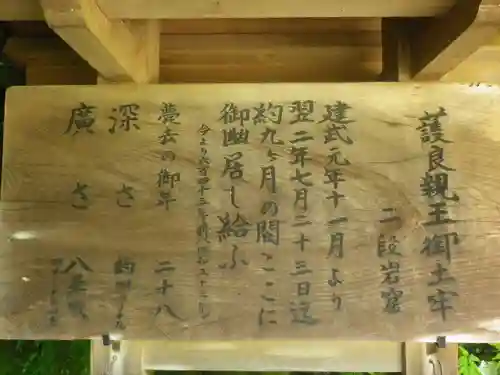 護良親王御土牢
二段岩窟
建武元年十一月より
翌二年七月二十三日迄
約九ヶ月の間ここに
御幽居し給ふ
薨去の御年 二十八
深さ 約四
廣さ 八畳